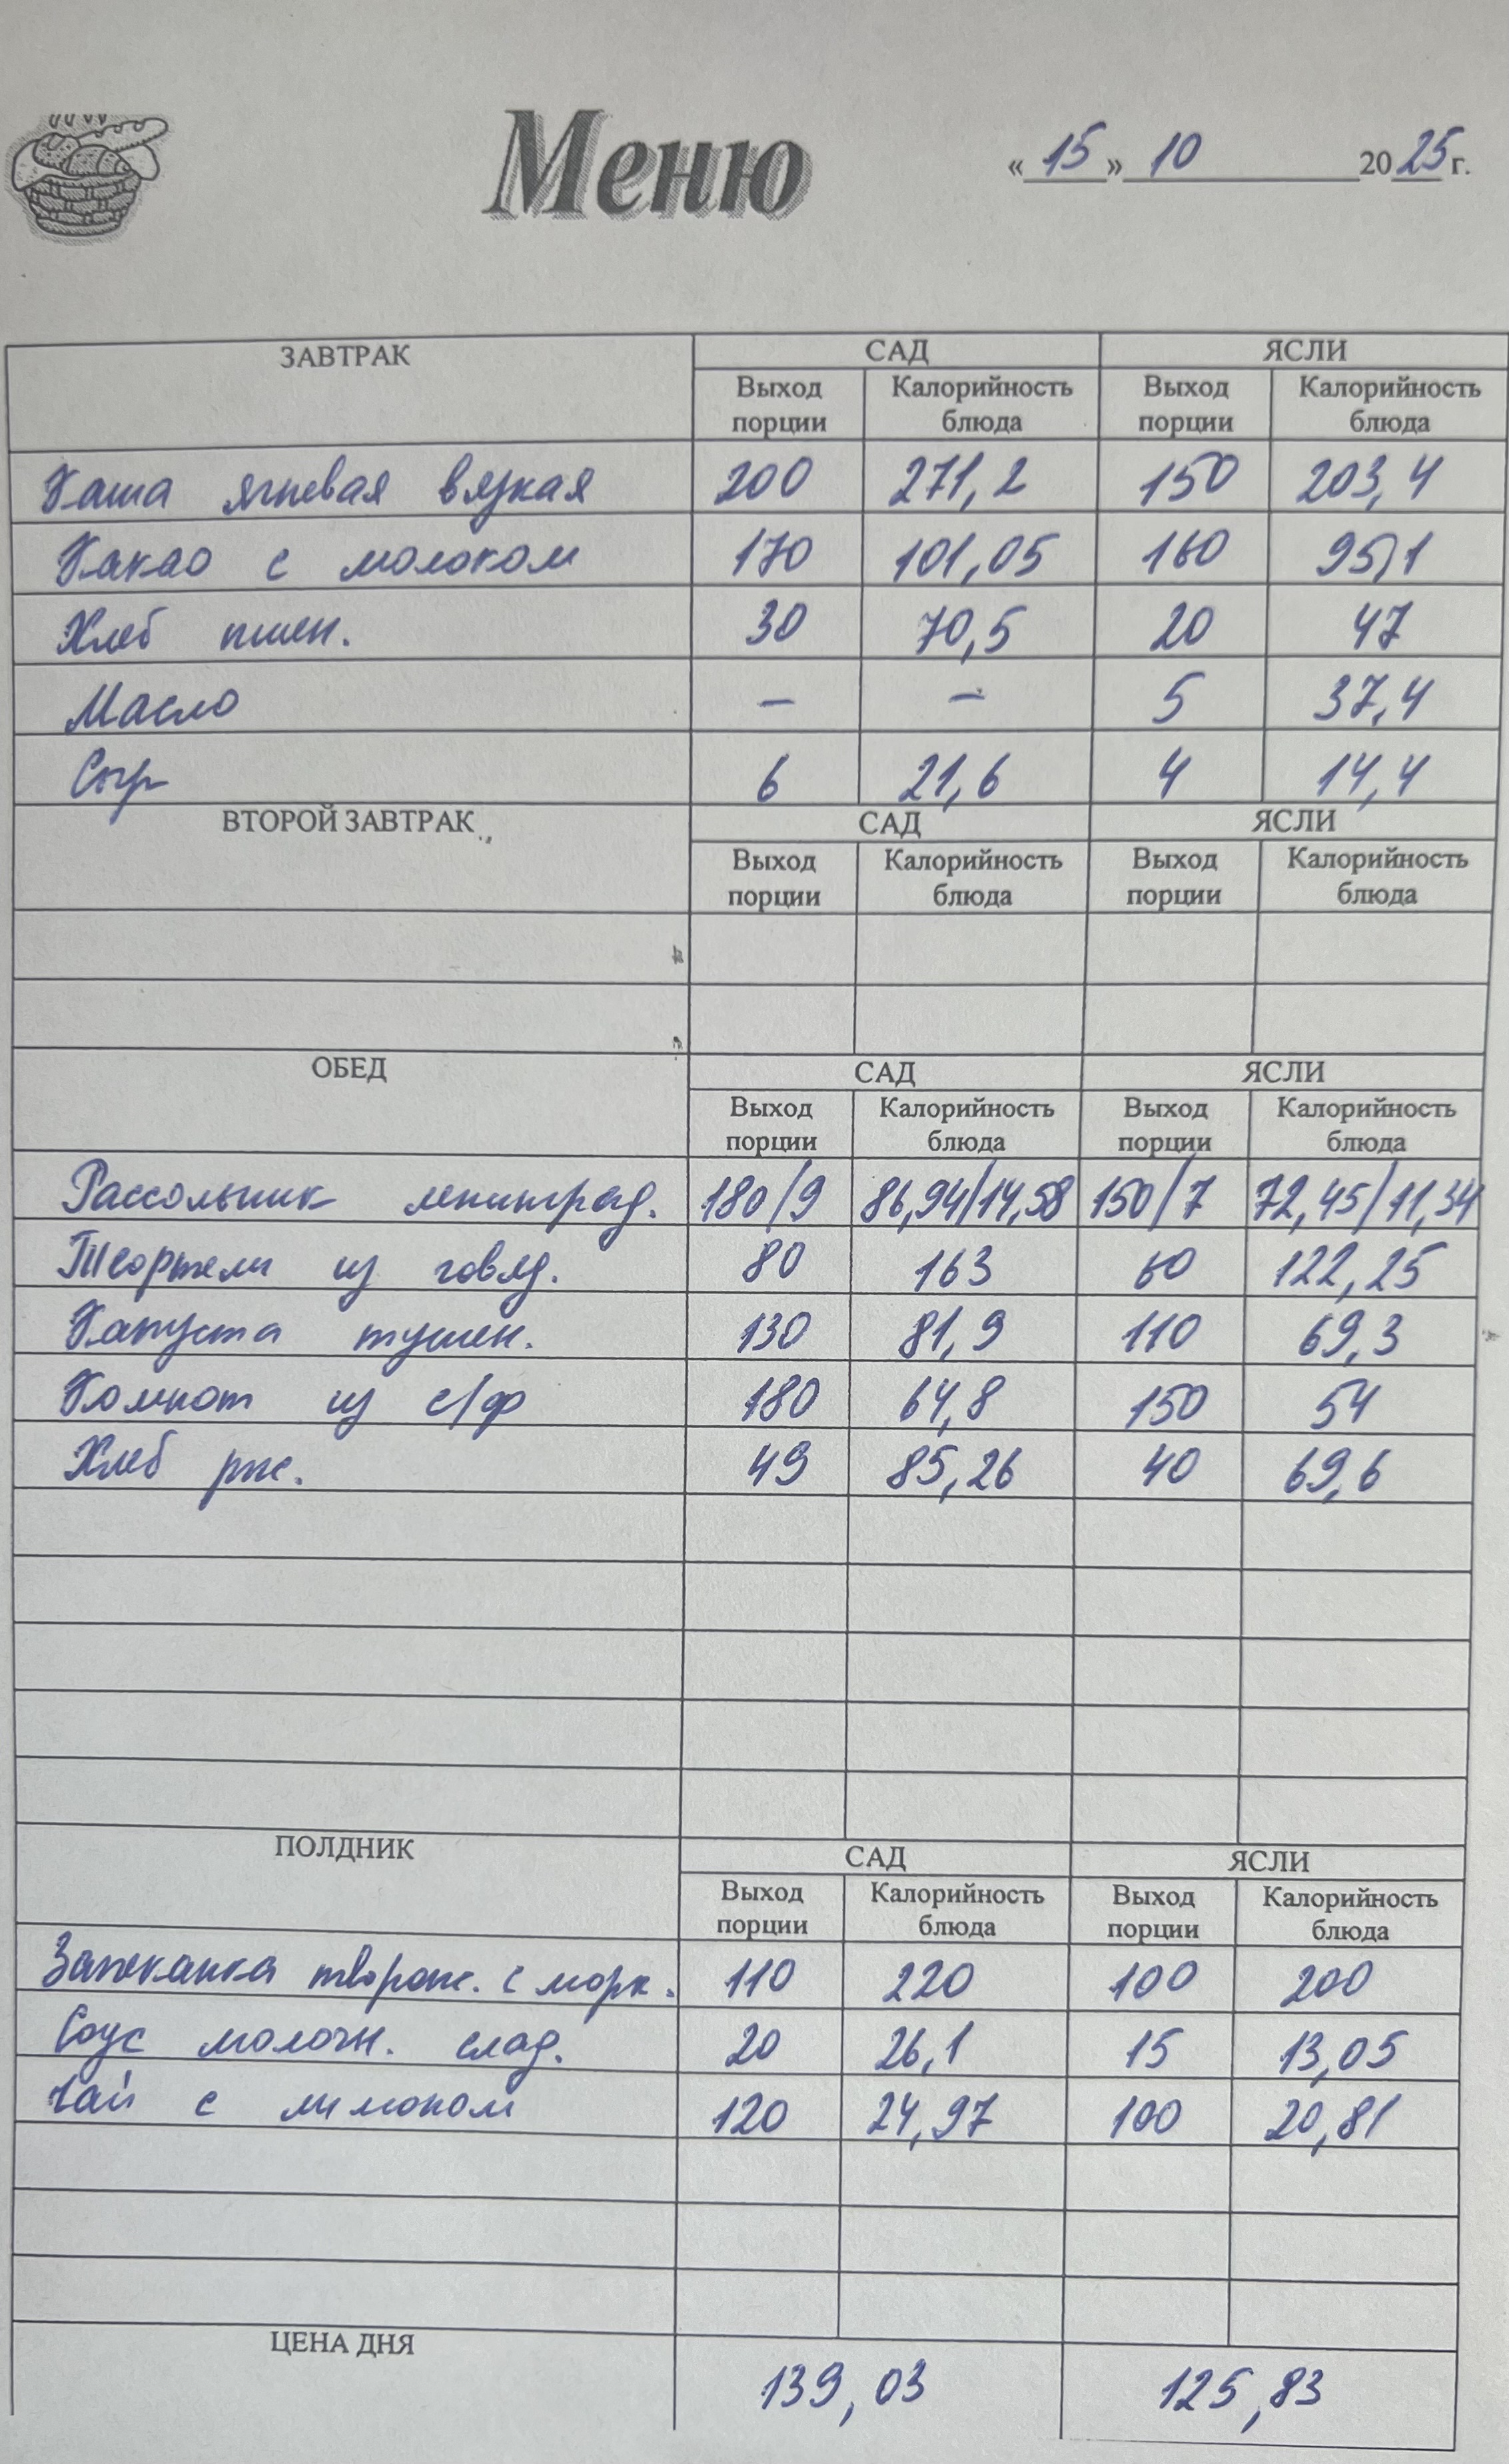 Меню
«15» 10 2025 г.
ЗАВТРАК САД ЯСЛИ
Выход порции Калорийность блюда Выход порции Калорийность блюда
Каша ячневая вязкая 200 271,2 150 203,4
Какао с молоком 170 101,05 160 95,1
Хлеб пшен. 30 70,5 20 47
Масло – – 5 37,4
Сыр 6 21,6 4 14,4
ВТОРОЙ ЗАВТРАК САД ЯСЛИ
Выход порции Калорийность блюда Выход порции Калорийность блюда
ОБЕД САД ЯСЛИ
Выход порции Калорийность блюда Выход порции Калорийность блюда
Рассольник ленинград. 180/9 86,94/14,58 150/7 72,45/11,34
Тефтели из говяд. 80 163 60 122,25
Капуста тушен. 130 81,9 110 69,3
Компот из с/ф 180 64,8 150 54
Хлеб рж. 49 85,26 40 69,6
ПОЛДНИК САД ЯСЛИ
Выход порции Калорийность блюда Выход порции Калорийность блюда
Запеканка творож. с морк. 110 220 100 200
Соус молочн. слад. 20 26,1 15 13,05
Чай с лимоном 120 24,97 100 20,81
ЦЕНА ДНЯ 139,03 125,83